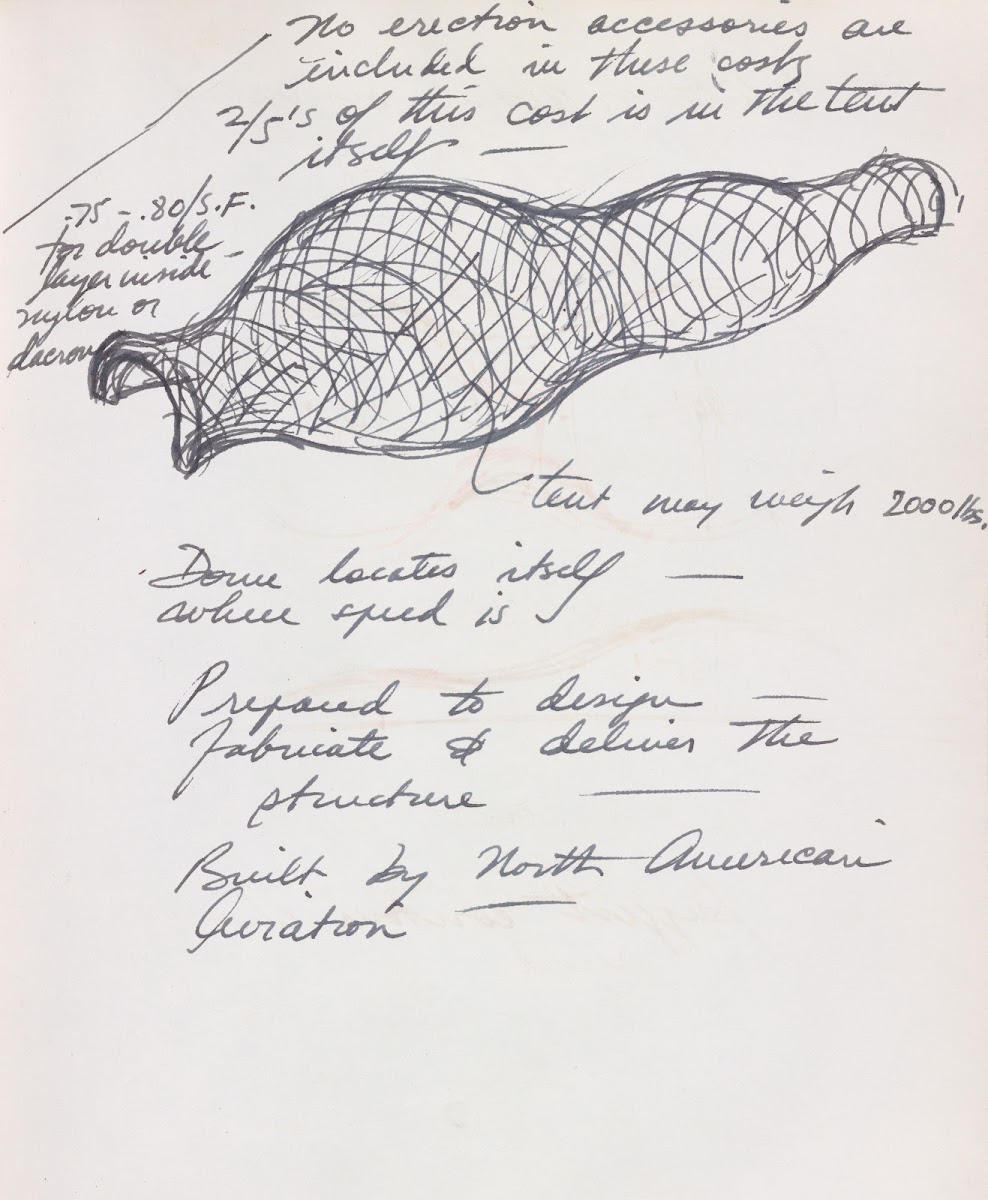 No erection accessories are
included in these costs
2/5's of this cost is in the tent
itself —
.75 - .80/S.F.
for double -
layer inside
nylon or
dacron
tent may weigh 2000 lbs.
Dome locates itself —
when sped is
Prepared to design —
fabricate & deliver the
structure —
Built by North American
Aviation